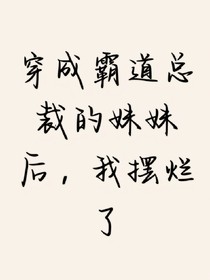 穿成霸道总
裁的妹妹
后，我摆烂
了